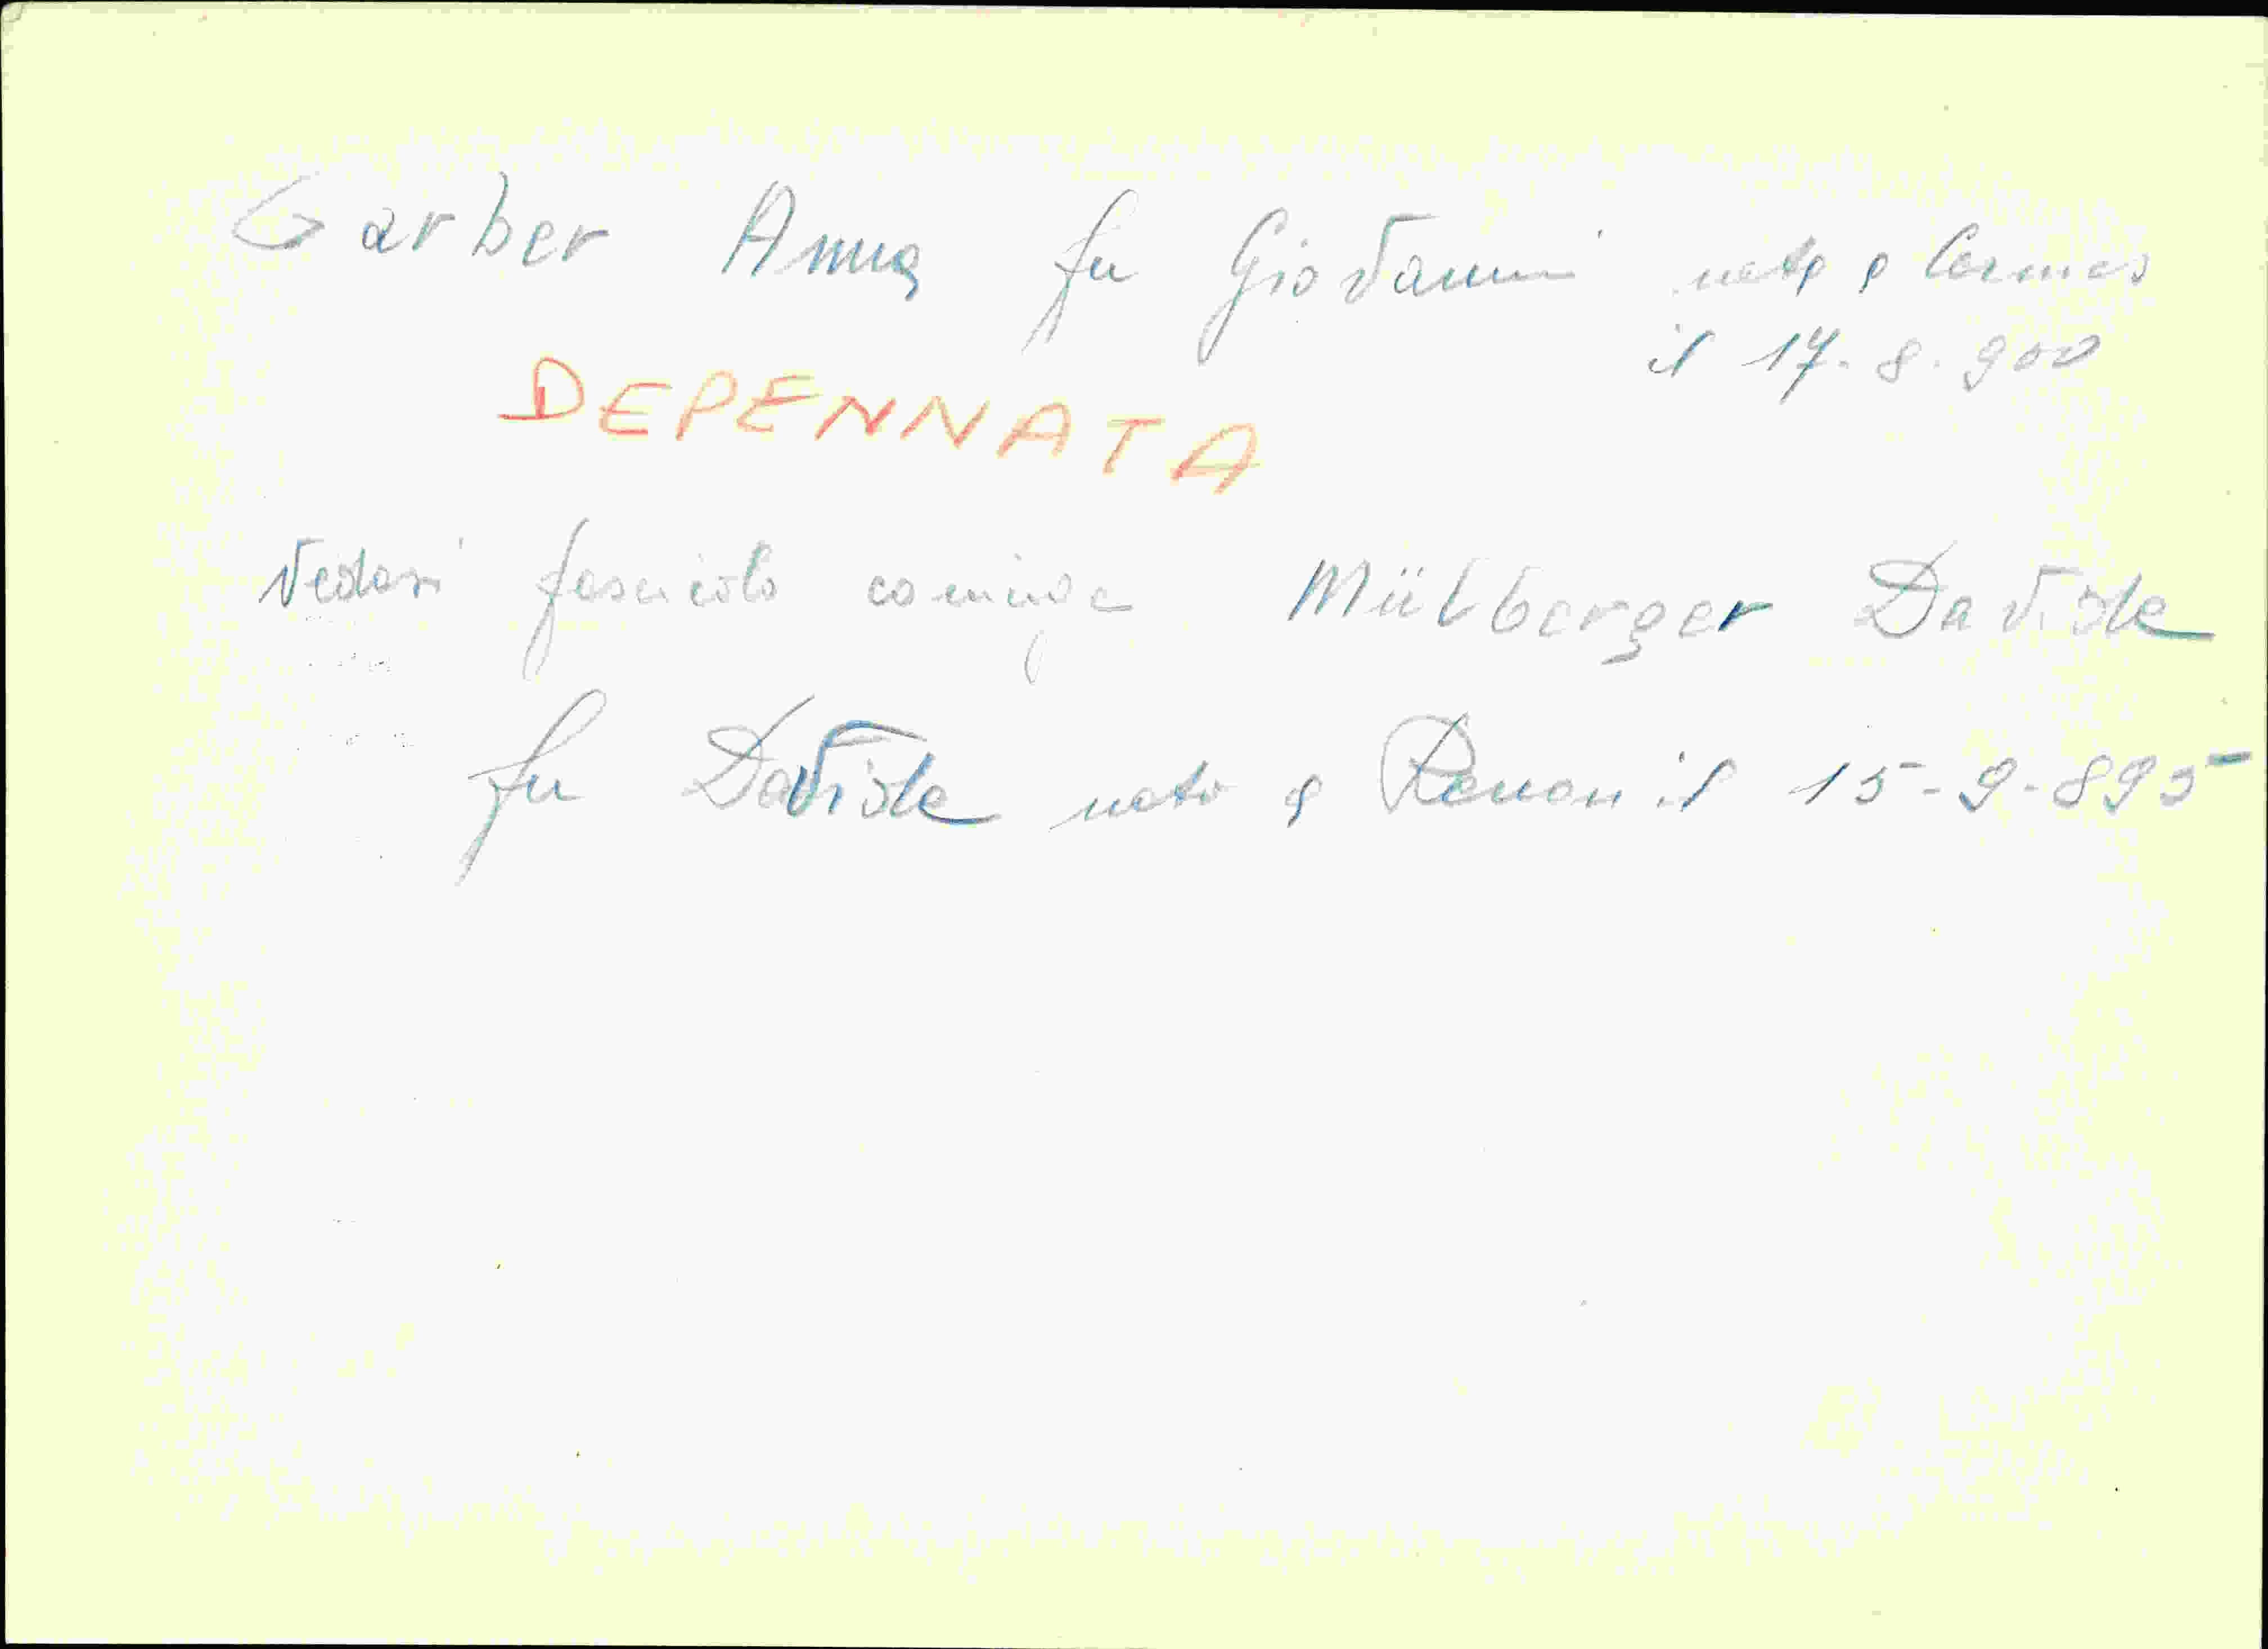 Garber Anna fu Giovanni nata a Cermes
il 17.8.900
DEPENNATA
Vedasi fascicolo coniuge Mülberger Davide
fu Davide nato a Renon il 15-9-895